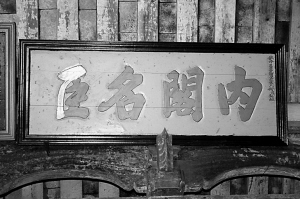 内閣名臣